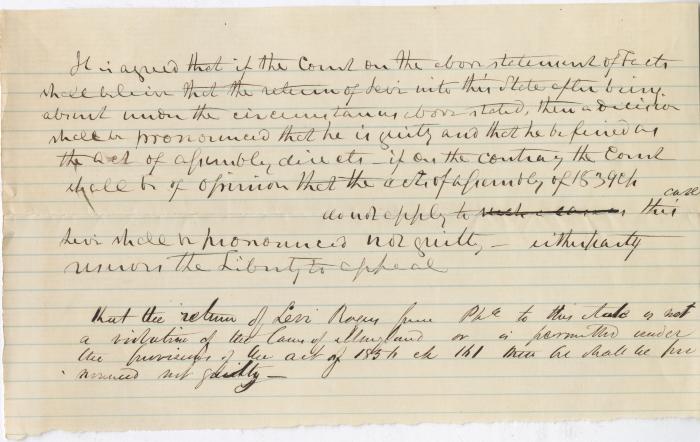 It is agreed that if the Court on the above statement of Facts
shall believe that the return of Levi into this State after being
absent under the circumstances above stated, then a decision
shall be pronounced that he is guilty and that he be fined as
the act of assembly directs - if on the contrary the Court
shall be of opinion that the acts of assembly of 1839 ch
case
do not apply to such a case as this
Levi shall be pronounced not guilty - either party
reserves the Liberty to appeal
that the return of Levi Rogers from Phila to this State is not
a violation of the Laws of Maryland or is permitted under
the provisions of the act of 1836 ch 161 then he shall be pro
nounced not guilty -